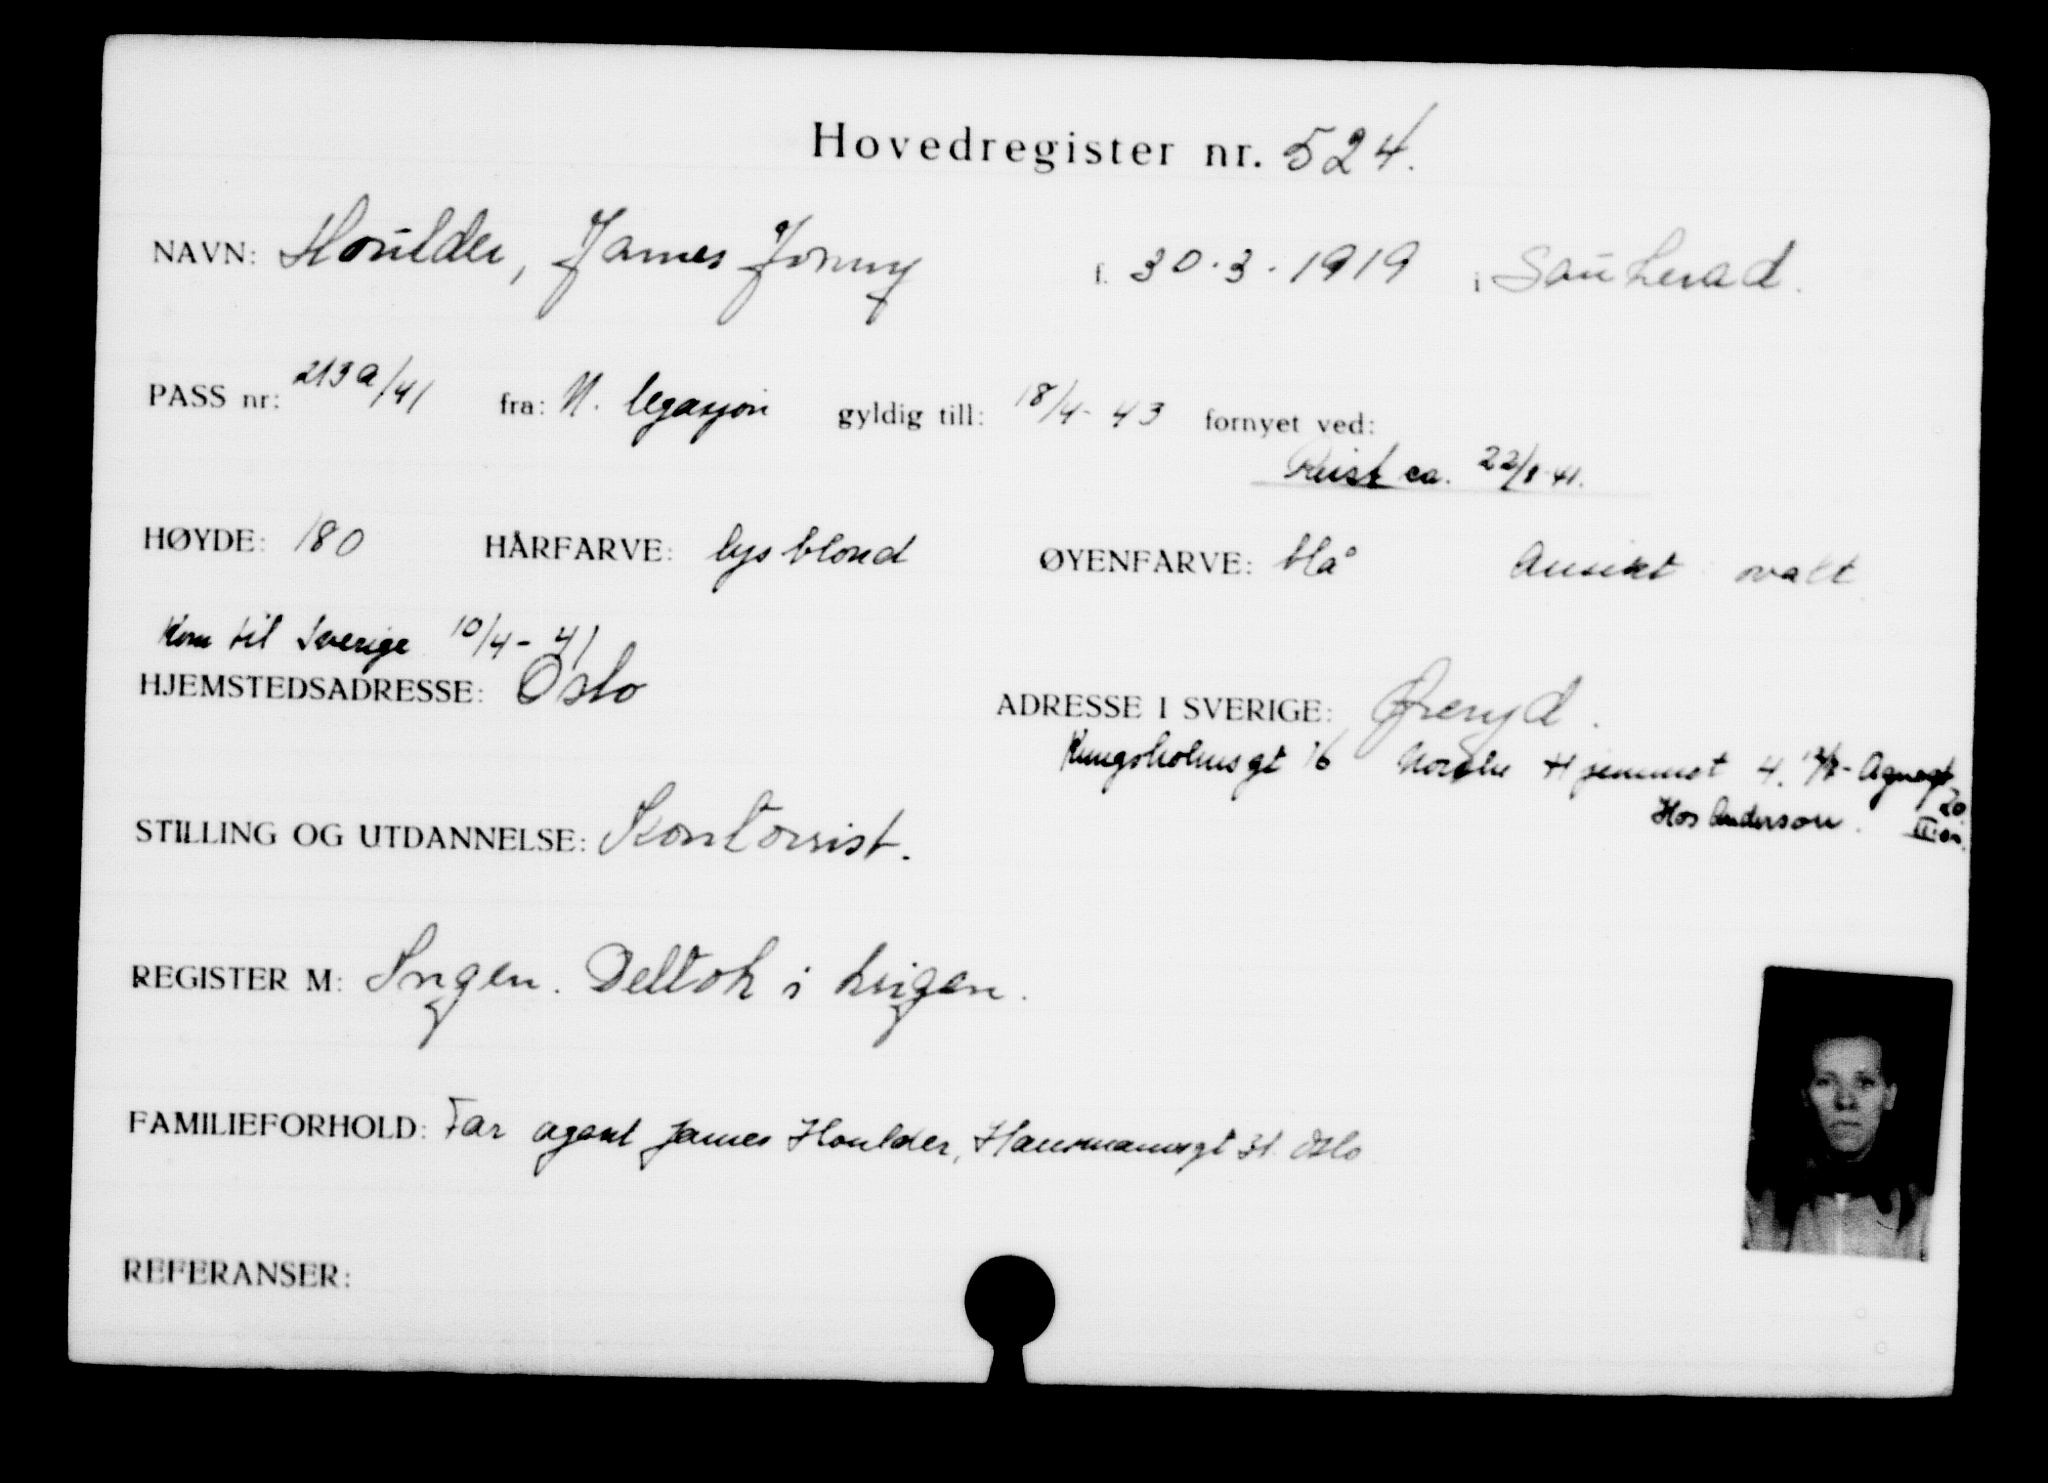 Hovedregister nr. 524.
NAVN: Houlder, James Jonny f. 30.3.1919 i Sauherad.
PASS nr: 213a/41 fra: N. legasjon gyldig till: 18/4-43 fornyet ved:
Reist ca. 22/8-41.
HØYDE: 180 HÅRFARVE: lys blond ØYENFARVE: blå Ansikt ovalt
Kom til Sverige 10/4-41
HJEMSTEDSADRESSE: Oslo ADRESSE I SVERIGE: Øreryd.
Kungsholmsgt 16 Norske Hjemmet 4. Agnegt 20
STILLING OG UTDANNELSE: Kontorist. Hos Anderson.
REGISTER M: Ingen. Deltok i krigen.
FAMILIEFORHOLD: Far agent James Houlder, Hausmannsgt 31. Oslo
REFERANSER: